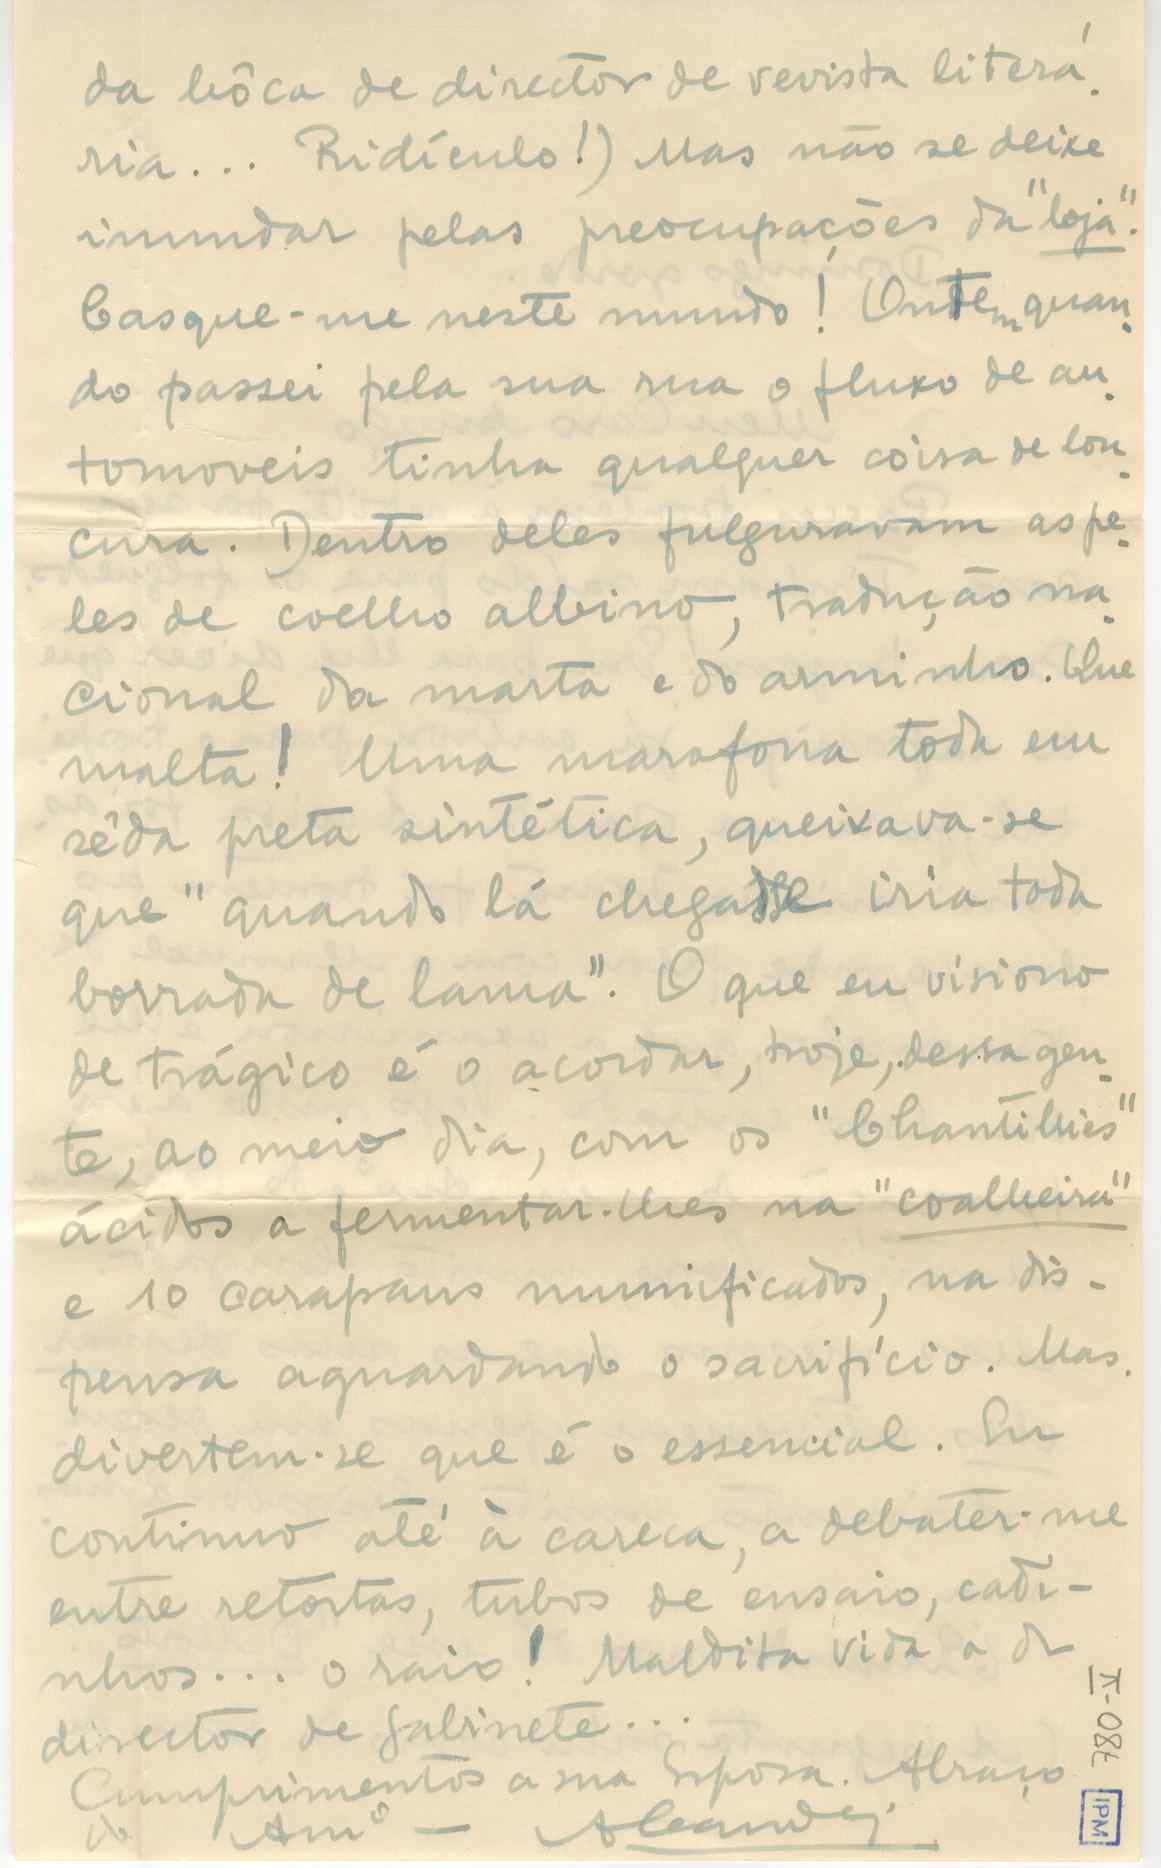 da bôca de director de revista literá-
ria... Ridículo!) Mas não se deixe
inundar pelas preocupações da "loja".
Casque-me neste mundo! Ontem quan-
do passei pela sua rua o fluxo de au-
tomoveis tinha qualquer coisa de lou-
cura. Dentro deles fulguravam as pe-
les de coelho albino, tradução na-
cional da marta e do arminho. Que
malta! Uma marafona toda em
sêda preta sintética, queixava-se
que "quando lá chegasse iria toda
borrada de lama". O que eu visiono
de trágico é o acordar, hoje, dessa gen-
te, ao meio dia, com os "Chantillies"
ácidos a fermentar-lhes na "coalheira"
e 10 carapaus mumificados, na dis-
pensa aguardando o sacrifício. Mas
divertem-se que é o essencial. Eu
continuo até à careca, a debater-me
entre retortas, tubos de ensaio, cadi-
nhos... o raio! Maldita vida a de
director de gabinete...
Cumprimentos a sua Esposa. Abraço
do Amº —
II-087
IPM